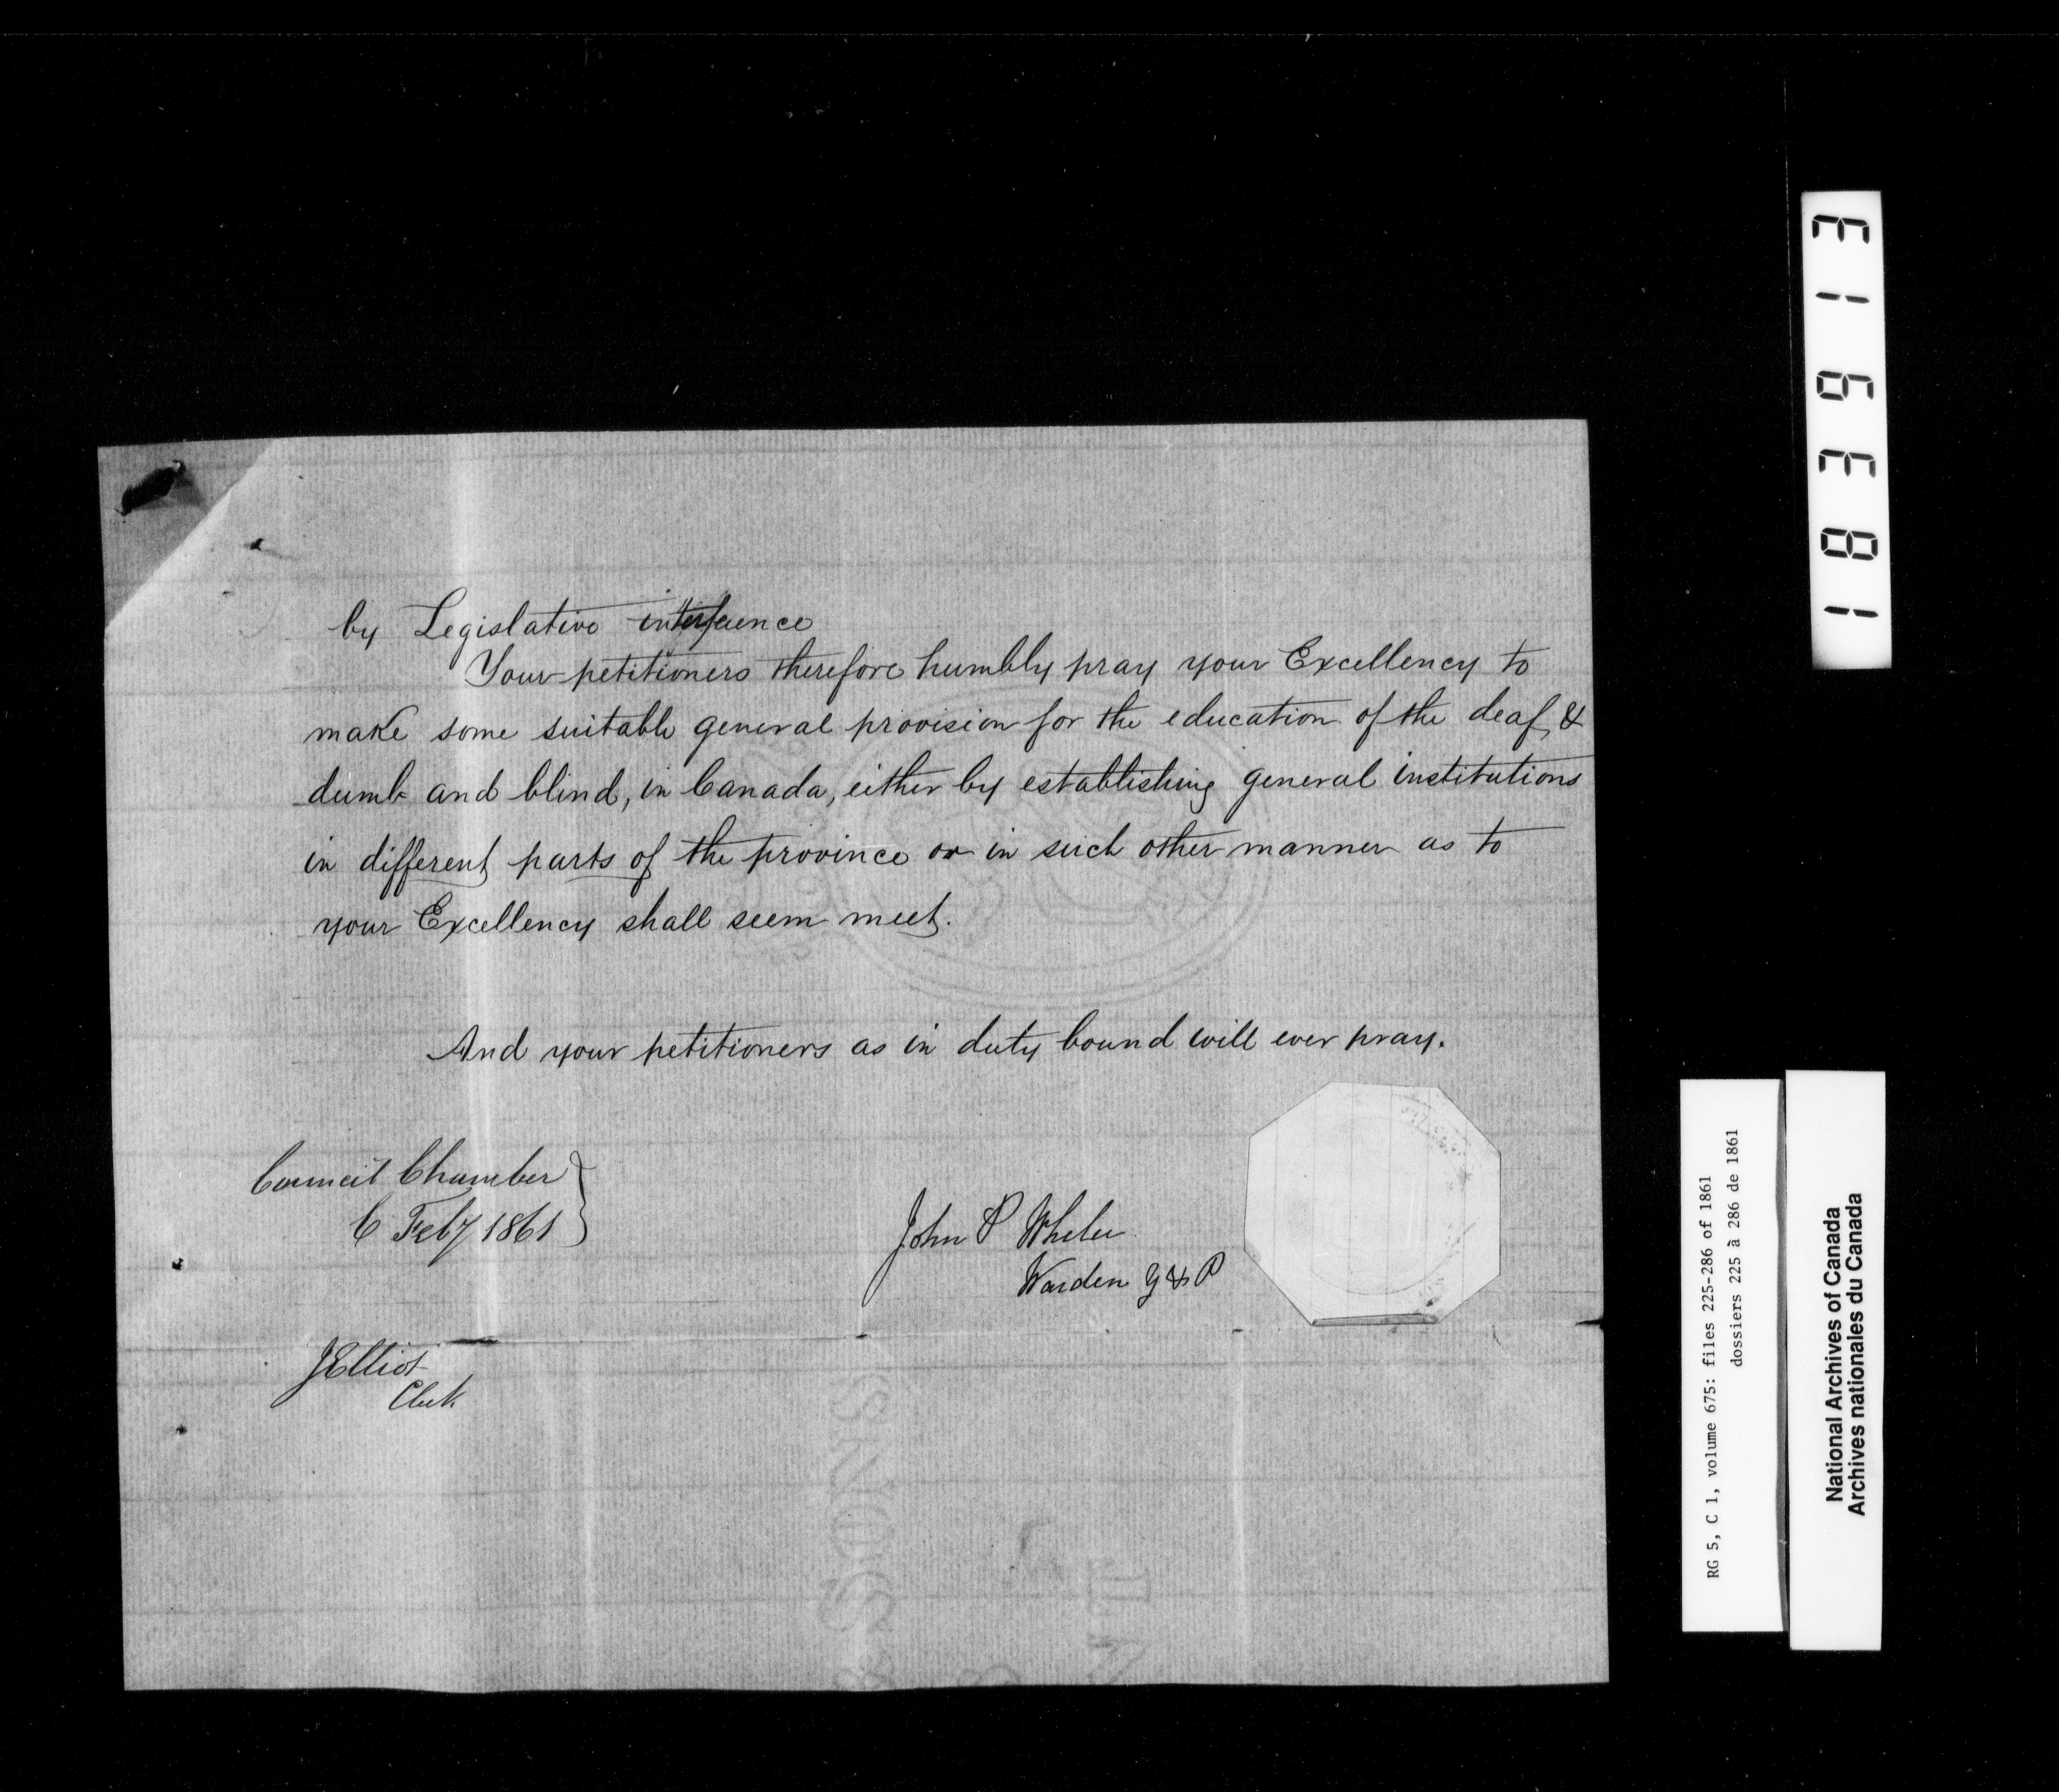 by Legislative interference
Your petitioners therefore humbly pray your Excellency to
make some suitable general provision for the education of the deaf &
dumb and blind, in Canada, either by establishing general institutions
in different parts of the province or in such other manner as to
your Excellency shall seem meet.
And your petitioners as in duty bound will ever pray.
Council Chamber
6 Feby 1861
John P Wheler
Warden Y & P
J Elliot
Clerk
183913
RG 5, C 1, volume 675: files 225-286 of 1861
dossiers 225 à 286 de 1861
National Archives of Canada
Archives nationales du Canada